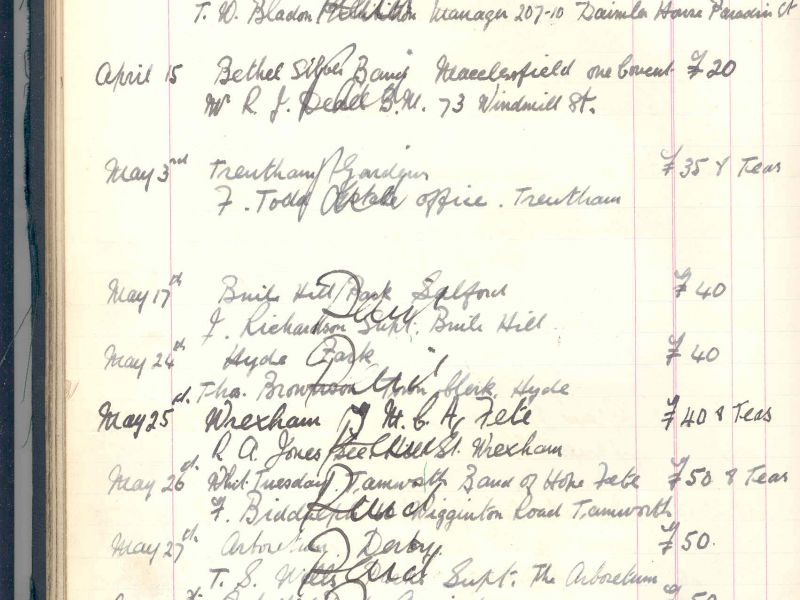 T. W. Bladon Exhibition Manager 207-10 Daimler House Paradise St
April 15 Bethel Silver Band Macclesfield one Concert £20
Mr R. J. B.M. 73 Windmill St.
May 3rd Trentham Gardens £35 & Teas
F. Todd Estate office. Trentham
May 17th Buile Hill Park Salford £40
J. Richardson Supt. Buile Hill
May 24th Hyde Park £40
Tho. Brownson Town Clerk. Hyde
May 25th Wrexham Y.M.C.A. Fete £40 & Teas
R. A. Jones St. Wrexham
May 26th Whit Tuesday Tamworth Band of Hope Fete £50 & Teas
F. Wigginton Road Tamworth
May 27th Arboretum Derby £50
T. S. Wells Supt. The Arboretum
£50